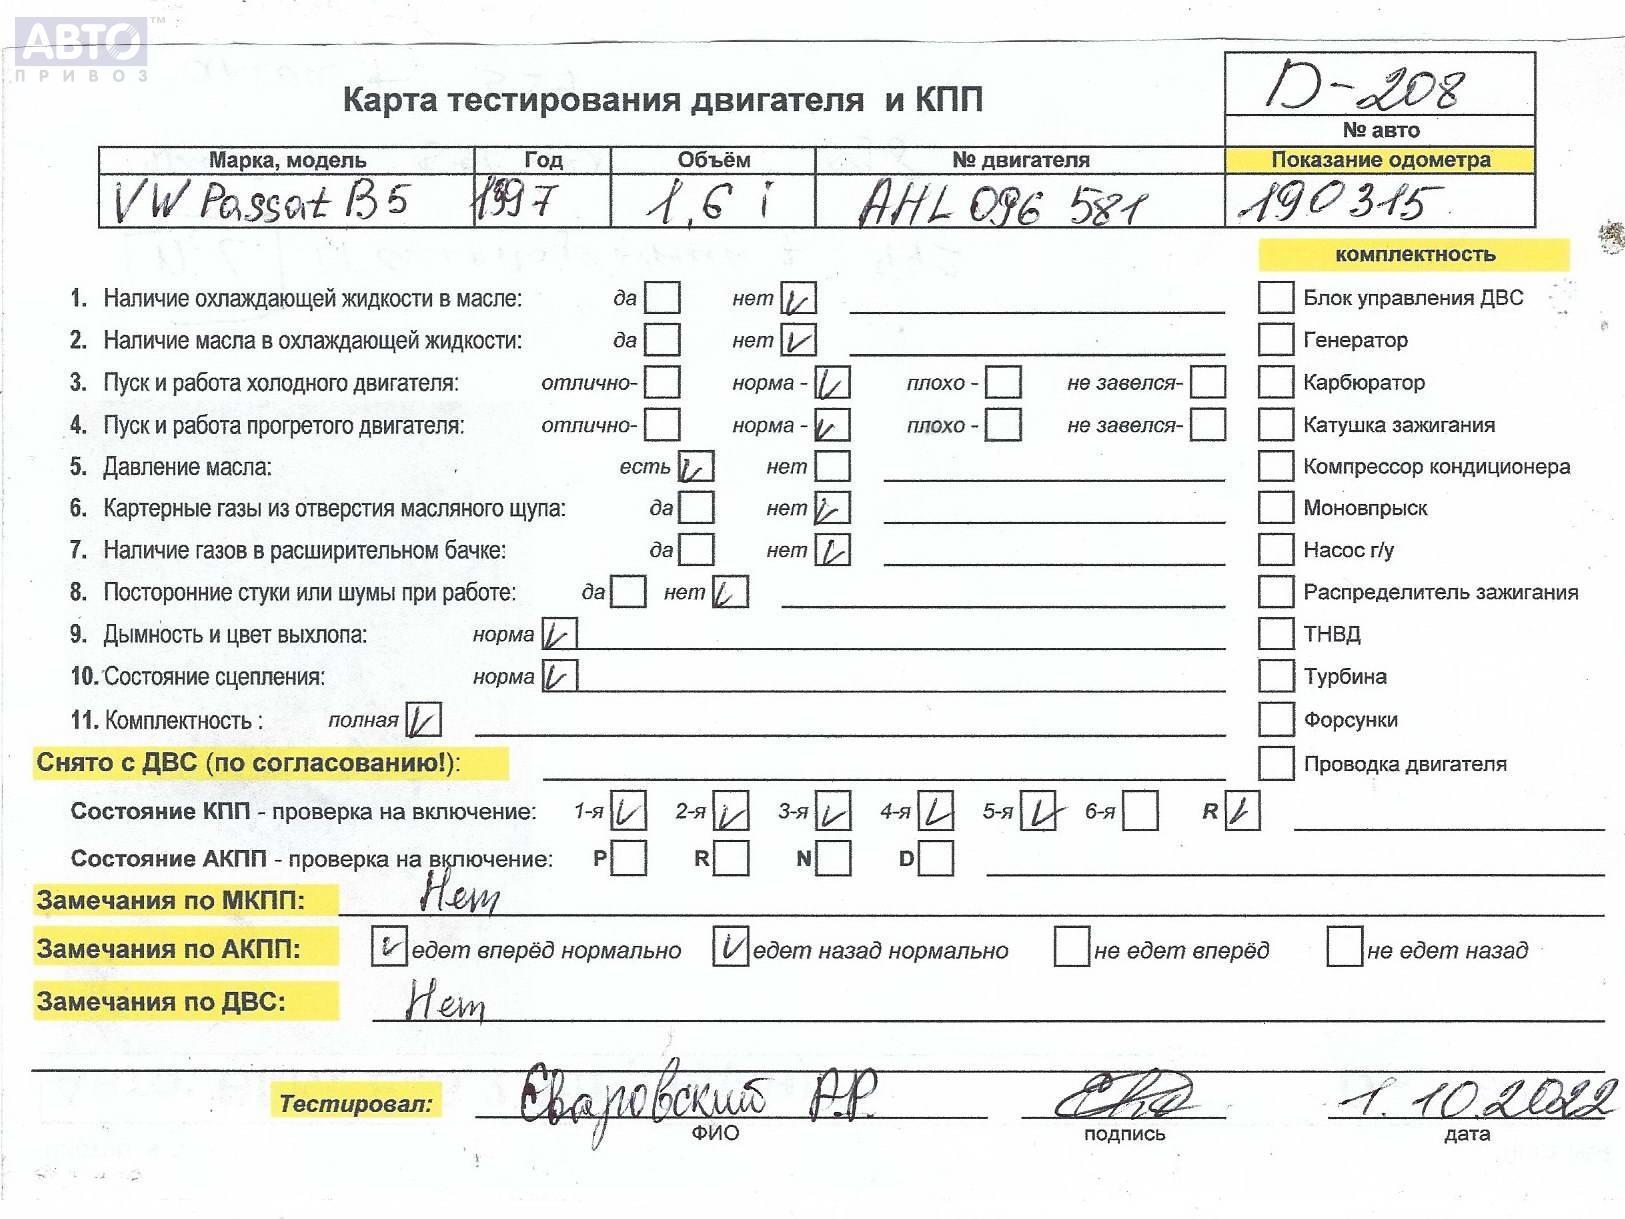 АВТО™
ПРИВОЗ
D-208
Карта тестирования двигателя и КПП
№ авто
Марка, модель Год Объём № двигателя Показание одометра
VW Passat B5 1997 1,6 i AHL 096 581 190315
комплектность
1. Наличие охлаждающей жидкости в масле: да нет V Блок управления ДВС
2. Наличие масла в охлаждающей жидкости: да нет V Генератор
3. Пуск и работа холодного двигателя: отлично- норма - V плохо - не завелся- Карбюратор
4. Пуск и работа прогретого двигателя: отлично- норма - V плохо - не завелся- Катушка зажигания
5. Давление масла: есть V нет Компрессор кондиционера
6. Картерные газы из отверстия масляного щупа: да нет V Моновпрыск
7. Наличие газов в расширительном бачке: да нет V Насос г/у
8. Посторонние стуки или шумы при работе: да нет V Распределитель зажигания
9. Дымность и цвет выхлопа: норма V ТНВД
10. Состояние сцепления: норма V Турбина
11. Комплектность : полная V Форсунки
Снято с ДВС (по согласованию!): Проводка двигателя
Состояние КПП - проверка на включение: 1-я V 2-я V 3-я V 4-я V 5-я V 6-я R V
Состояние АКПП - проверка на включение: P R N D
Замечания по МКПП: Нет
Замечания по АКПП: V едет вперёд нормально V едет назад нормально не едет вперёд не едет назад
Замечания по ДВС: Нет
Тестировал: Р.Р. 1.10.2022
ФИО подпись дата